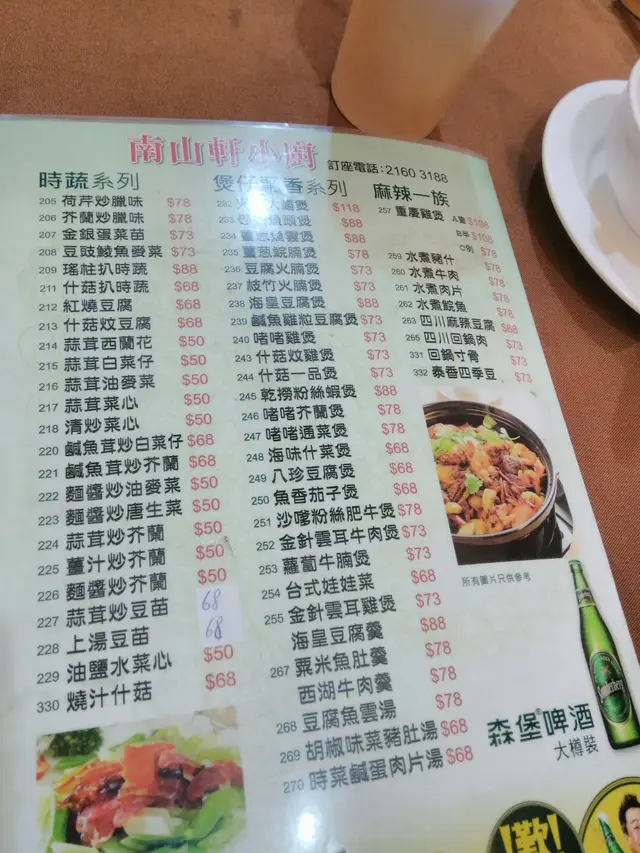 南山軒小廚 訂座電話：2160 3188
時蔬系列
205 荷芹炒臘味 $78
206 芥蘭炒臘味 $78
207 金銀蛋菜苗 $73
208 豆豉鯪魚麥菜 $73
209 瑤柱扒時蔬 $88
211 什菇扒時蔬 $68
212 紅燒豆腐 $68
213 什菇炆豆腐 $68
214 蒜茸西蘭花 $50
215 蒜茸白菜仔 $50
216 蒜茸油麥菜 $50
217 蒜茸菜心 $50
218 清炒菜心 $50
220 鹹魚茸炒白菜仔 $68
221 鹹魚茸炒芥蘭 $68
222 麵醬炒油麥菜 $50
223 麵醬炒唐生菜 $50
224 蒜茸炒芥蘭 $50
225 薑汁炒芥蘭 $50
226 麵醬炒芥蘭 $50
227 蒜茸炒豆苗 68
228 上湯豆苗 68
229 油鹽水菜心 $50
330 燒汁什菇 $68
煲仔 香系列
232 煲 $118
233 煲 $88
234 薑葱魚雲煲 $88
235 薑葱鯇腩煲 $78
236 豆腐火腩煲 $73
237 枝竹火腩煲 $73
238 海皇豆腐煲 $88
239 鹹魚雞粒豆腐煲 $73
240 啫啫雞煲 $73
243 什菇炆雞煲 $73
244 什菇一品煲 $73
245 乾撈粉絲蝦煲 $88
246 啫啫芥蘭煲 $78
247 啫啫通菜煲 $78
248 海味什菜煲 $68
249 八珍豆腐煲 $68
250 魚香茄子煲 $68
251 沙嗲粉絲肥牛煲 $78
252 金針雲耳牛肉煲 $73
253 蘿蔔牛腩煲 $73
254 台式娃娃菜 $68
255 金針雲耳雞煲 $73
海皇豆腐羹 $88
267 粟米魚肚羹 $78
西湖牛肉羹 $78
268 豆腐魚雲湯 $78
269 胡椒味菜豬肚湯 $68
270 時菜鹹蛋肉片湯 $68
麻辣一族
257 重慶雞煲 A隻 $188
B半 $108
C例 $78
259 水煮豬什 $78
260 水煮牛肉 $78
261 水煮肉片 $78
262 水煮鯇魚 $78
263 四川麻辣豆腐 $68
265 四川回鍋肉 $73
331 回鍋寸骨 $73
332 泰香四季豆 $73
所有圖片只供參考
森堡啤酒
大樽裝
歎!